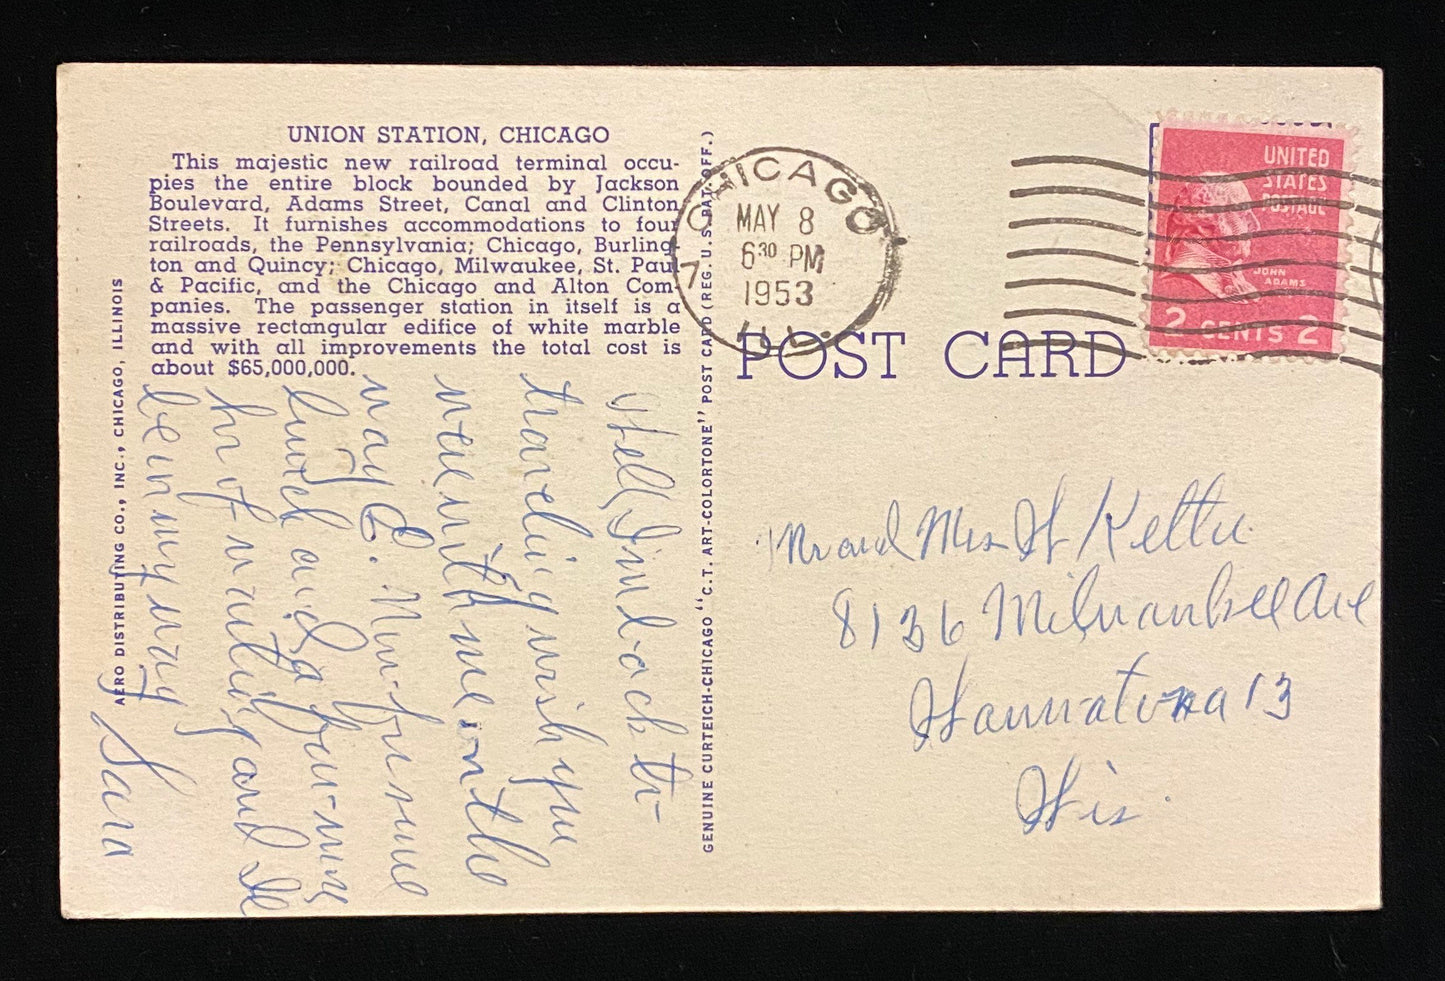 UNION STATION, CHICAGO
This majestic new railroad terminal occu-
pies the entire block bounded by Jackson
Boulevard, Adams Street, Canal and Clinton
Streets. It furnishes accommodations to four
railroads, the Pennsylvania; Chicago, Burling-
ton and Quincy; Chicago, Milwaukee, St. Paul
& Pacific, and the Chicago and Alton Com-
panies. The passenger station in itself is a
massive rectangular edifice of white marble
and with all improvements the total cost is
about $65,000,000.
AERO DISTRIBUTING CO., INC., CHICAGO, ILLINOIS
Well, I'm back to
traveling wish you
were with me on the
way E. Now for some
lunch and a few more
hr of waiting and Ile
be in my way
Sara
GENUINE CURTEICH-CHICAGO "C.T. ART-COLORTONE" POST CARD (REG. U.S. PAT. OFF.)
CHICAGO
7
MAY 8
6 30 PM
1953
ILL.
POST CARD
UNITED
STATES
POSTAGE
JOHN
ADAMS
2 CENTS 2
Mr and Mrs W
8136 Milwaukee Ave
Wauwatosa 13
Wis.